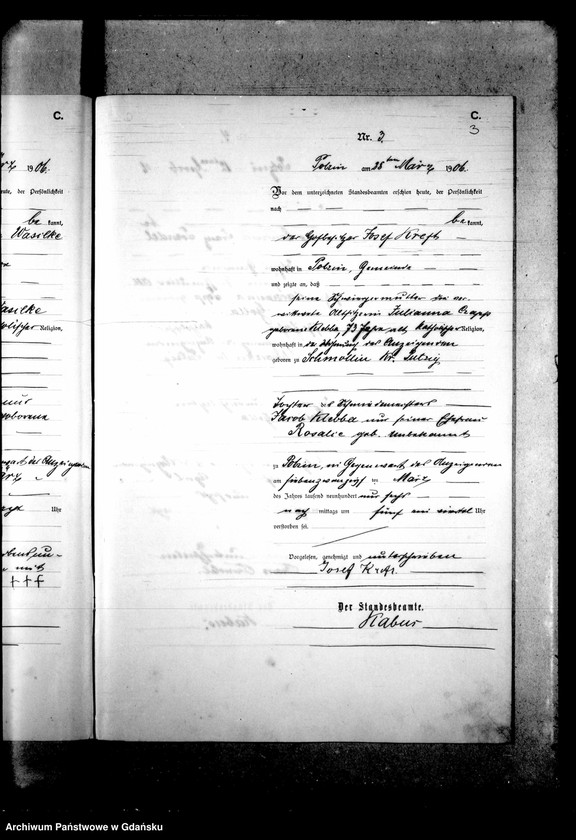 C.
rz 1906.
heute, der Persönlichkeit
be kannt,
Wasilke
Wasilke
Religion,
Uhr
mit
† † †
C.
3
Nr. 3.
Polzin am 28ten März 1906.
Vor dem unterzeichneten Standesbeamten erschien heute, der Persönlichkeit
nach
be kannt,
der Hofbesitzer Josef Kreft
wohnhaft in Polzin, Gemeinde
und zeigte an, daß
seine Schwiegermutter die ver-
witwete Altsitzerin Julianna
geborene Klebba, 73 Jahre alt, katholischer Religion,
wohnhaft in der Wohnung des Anzeigenden
geboren zu Schmollin Kr. Putzig
Tochter des Schmiedemeisters
Jacob Klebba und seiner Ehefrau
Rosalie geb. unbekannt
zu Polzin, in Gegenwart des Anzeigenden
am siebenzwanzigst ten März
des Jahres tausend neunhundert und sechs
nach mittags um fünf ein viertel Uhr
verstorben sei.
Vorgelesen, genehmigt und unterschrieben
Josef Kreft.
Der Standesbeamte.
Kabus
Archiwum Państwowe w Gdańsku